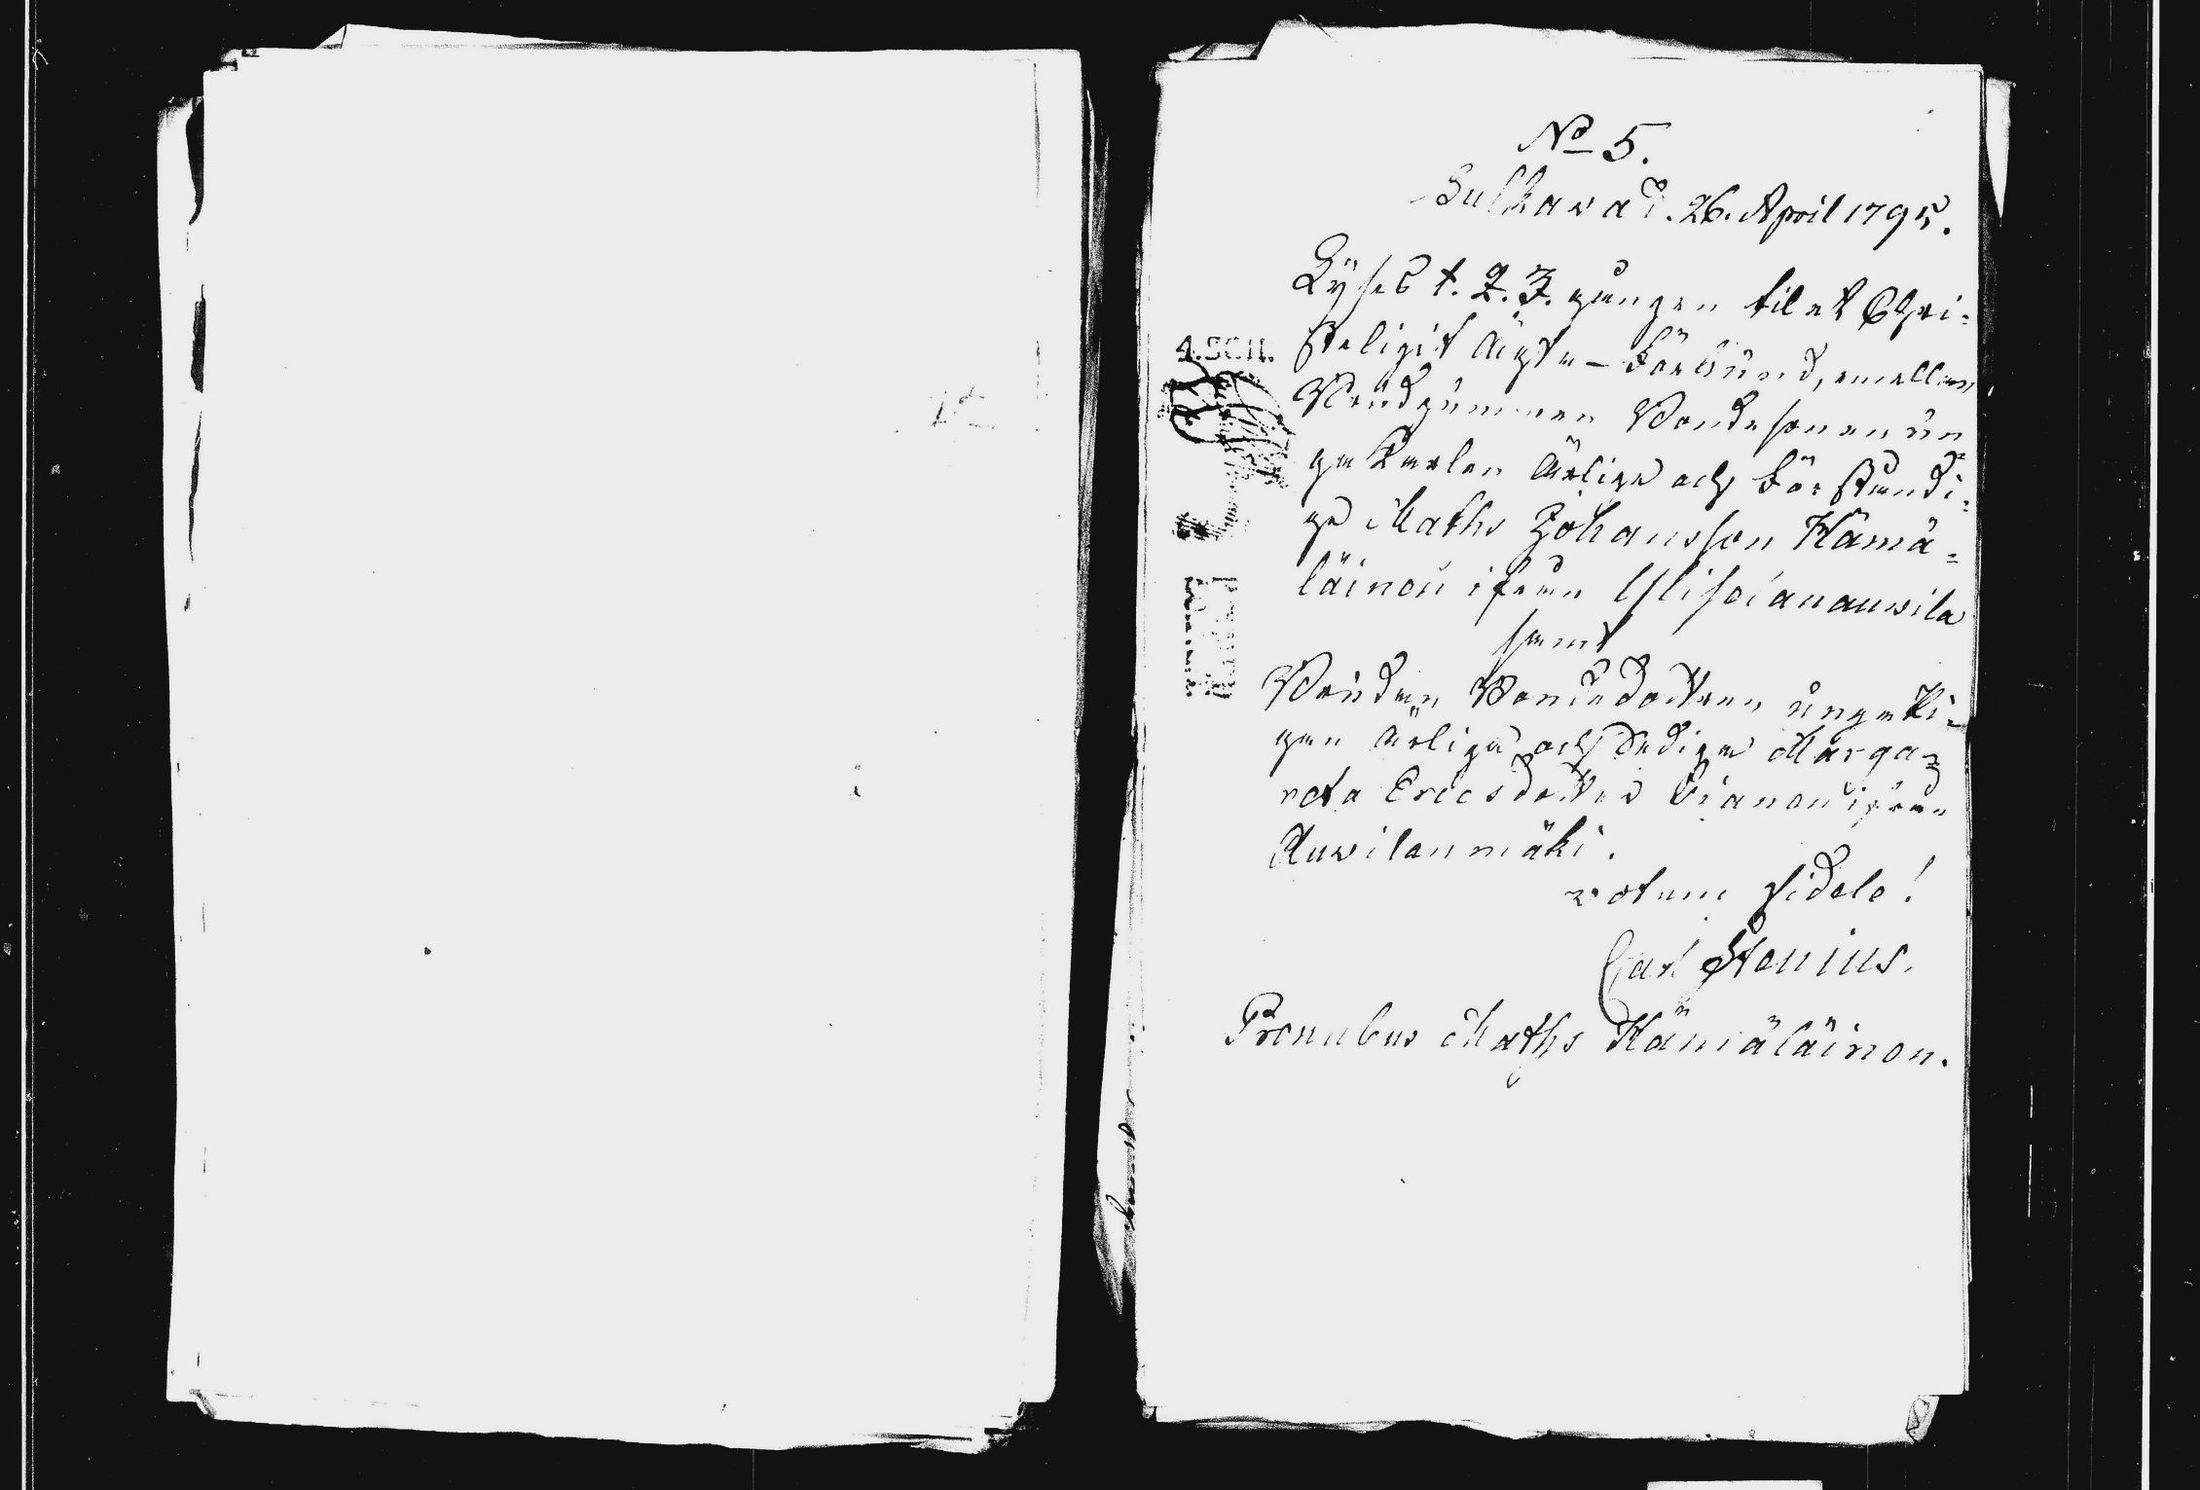 No 5.
Sulkava d. 26. April 1795.
Lyses 1. 2. 3. gången til et Chri-
steligit Ächta-Förbund, emellan
Brudgummen Bondesonen un
ga Karlen Ärlige och Förståndi-
ge Maths Johansson Hämä-
läinen ifrån
samt
Bruden Bondedottren unga Pi-
gan ärliga och dediga Marga-
reta Ericsdotter ifrån
Auvilanmäki.
votum fidele!
Carl Stenius.
Pronubus Maths Hämäläinen.
4.SCH.